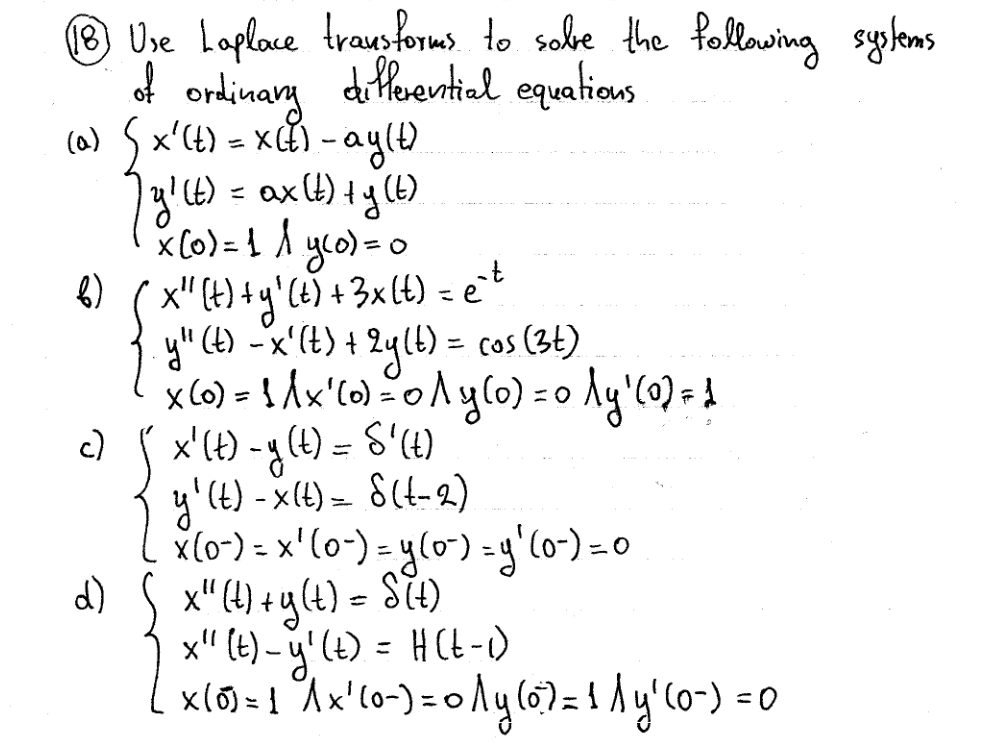 (18) Use Laplace transforms to solve the following systems
of ordinary differential equations
(a) { x'(t) = x(t) - ay(t)
y'(t) = ax(t) + y(t)
x(0) = 1 ∧ y(0) = 0
b) { x''(t) + y'(t) + 3x(t) = e^-t
y''(t) - x'(t) + 2y(t) = cos(3t)
x(0) = 1 ∧ x'(0) = 0 ∧ y(0) = 0 ∧ y'(0) = 1
c) { x'(t) - y(t) = δ'(t)
y'(t) - x(t) = δ(t-2)
x(0-) = x'(0-) = y(0-) = y'(0-) = 0
d) { x''(t) + y(t) = δ(t)
x''(t) - y'(t) = H(t-1)
x(0-) = 1 ∧ x'(0-) = 0 ∧ y(0-) = 1 ∧ y'(0-) = 0